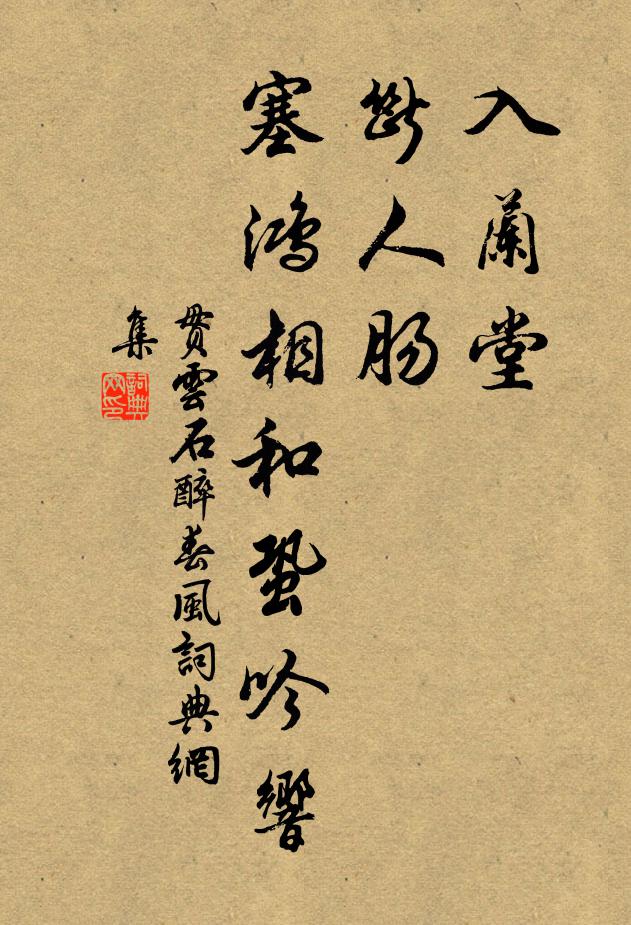 入蘭堂
斷人肠
塞鴻相和蛩吟響
貫雲石醉春風詞典網
集
詞典
网印